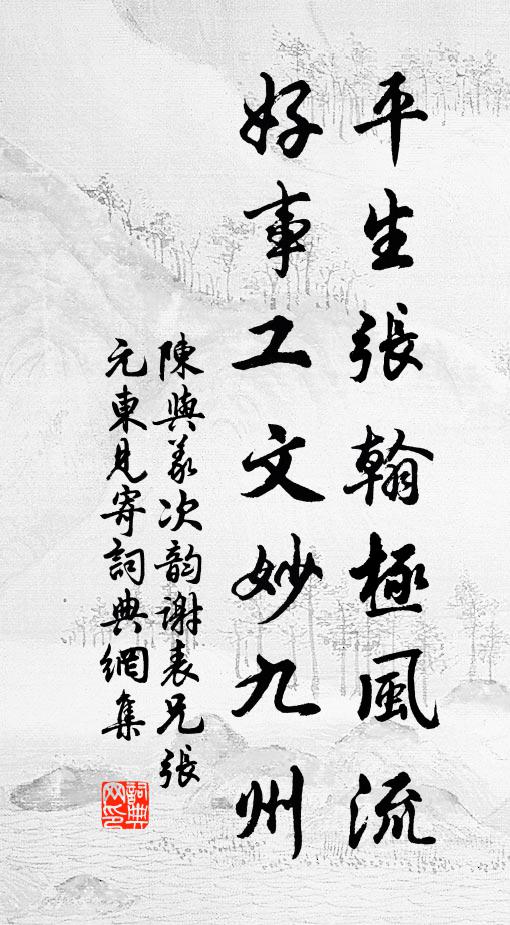 平生張翰極風流
好事工文妙九州
陳與義次韵謝表兄張
元東見寄詞典網集
詞典网印